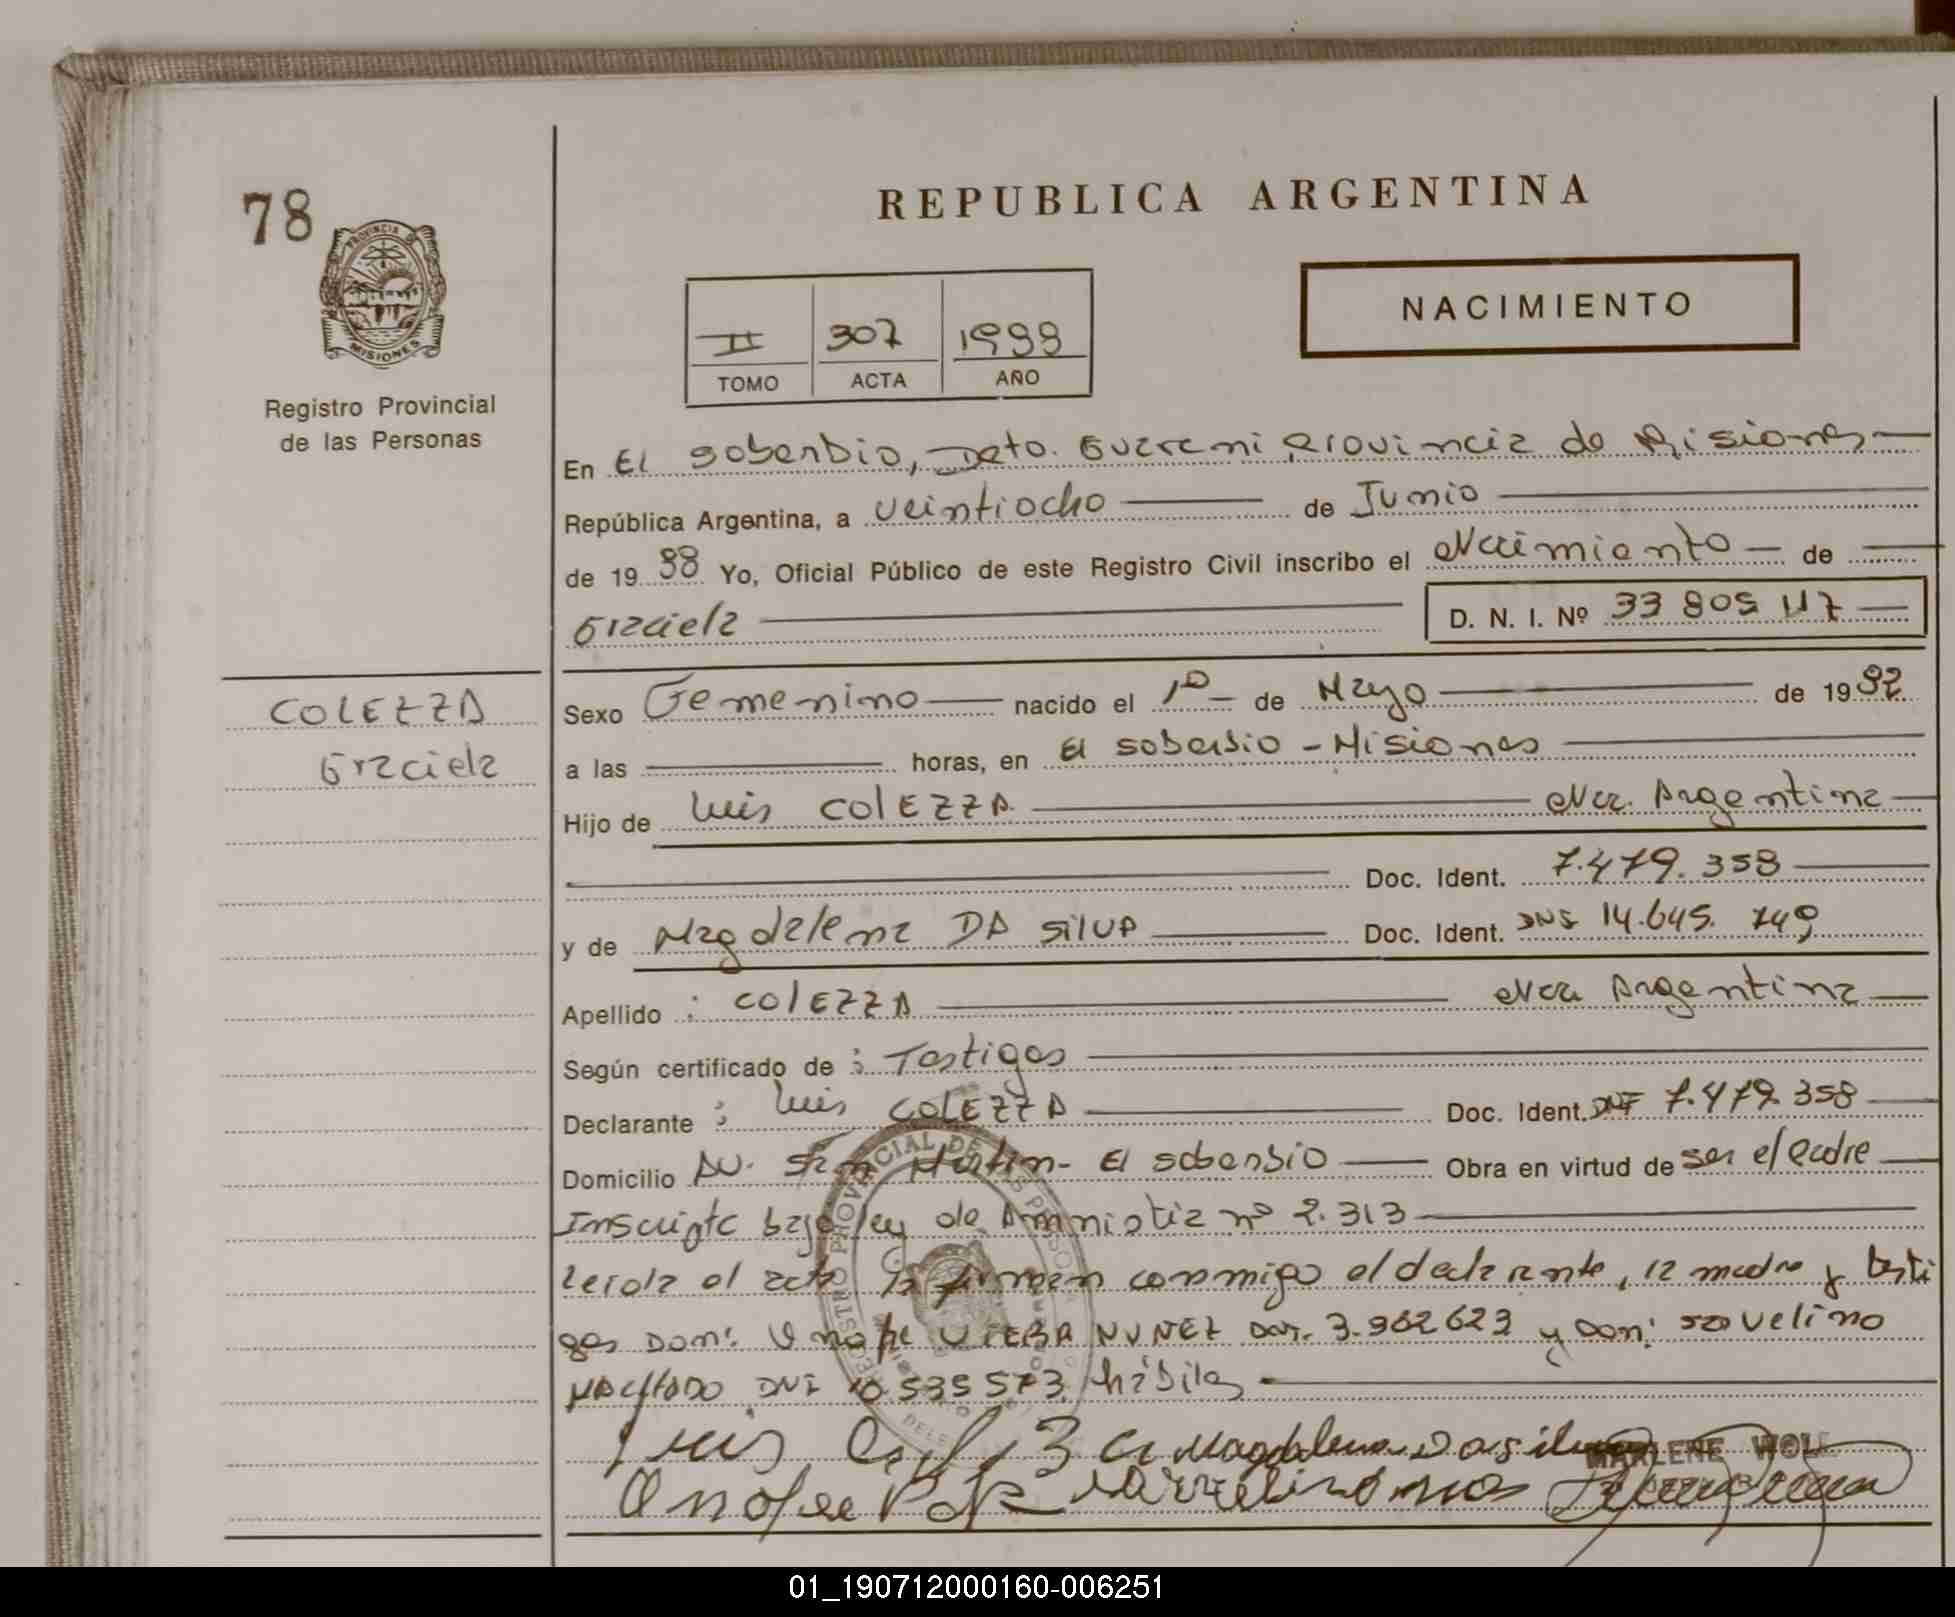 78
REPUBLICA ARGENTINA
NACIMIENTO
PROVINCIA DE
MISIONES
II 307 1999
TOMO ACTA AÑO
Registro Provincial
de las Personas
En El soberbio, Dpto. Guarani Provincia de Misiones
República Argentina, a veintiocho de Junio
de 19 99 Yo, Oficial Público de este Registro Civil inscribo el Nacimiento de
Graciela D. N. I. Nº 33 805 117
COLEZZA
Graciela
Sexo Femenino nacido el 1º de Mayo de 19 92
a las horas, en El soberbio - Misiones
Hijo de Luis COLEZZA Nac. Argentina
Doc. Ident. 7.479.358
y de Magdalena DA SILVA Doc. Ident. DNI 14.645.749
Apellido : COLEZZA Nac. Argentina
Según certificado de : Testigos
Declarante : Luis COLEZZA Doc. Ident. DNI 7.479.358
Domicilio AV. San Martin - El soberbio Obra en virtud de ser el padre
Inscripta bajo ley de Amnistia nº 2.313
leida el acta la firman conmigo el declarante, la madre y testi
gos Don: NUÑEZ 3.962623 y Don:
MACHADO DNI 10.535573 hábiles
Magdalena Da silva
MARLENE WOL
01_190712000160-006251